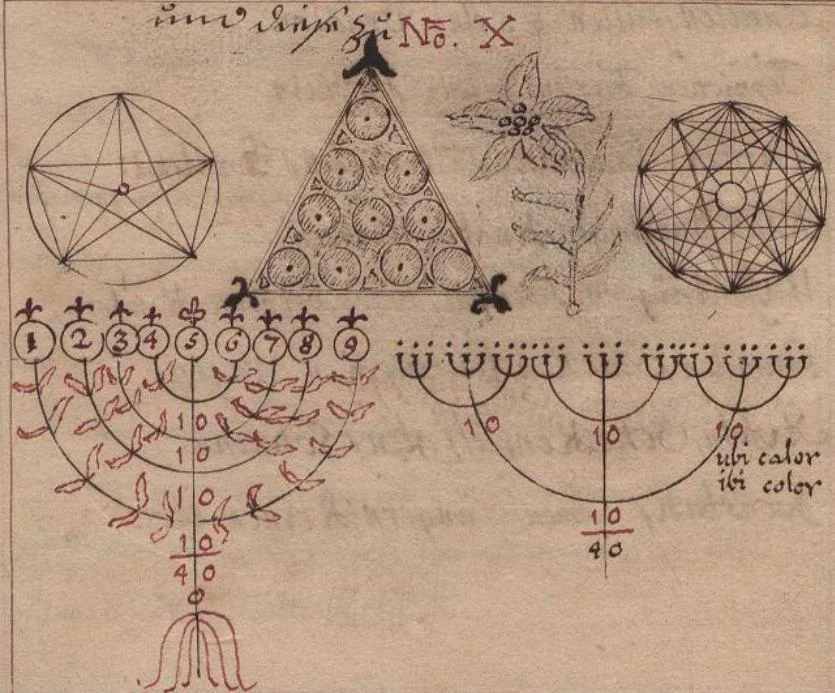 und diese zu No. X
1 2 3 4 5 6 7 8 9
10
10
10
10
40
0
10 10 10
ubi calor
ibi color
10
40